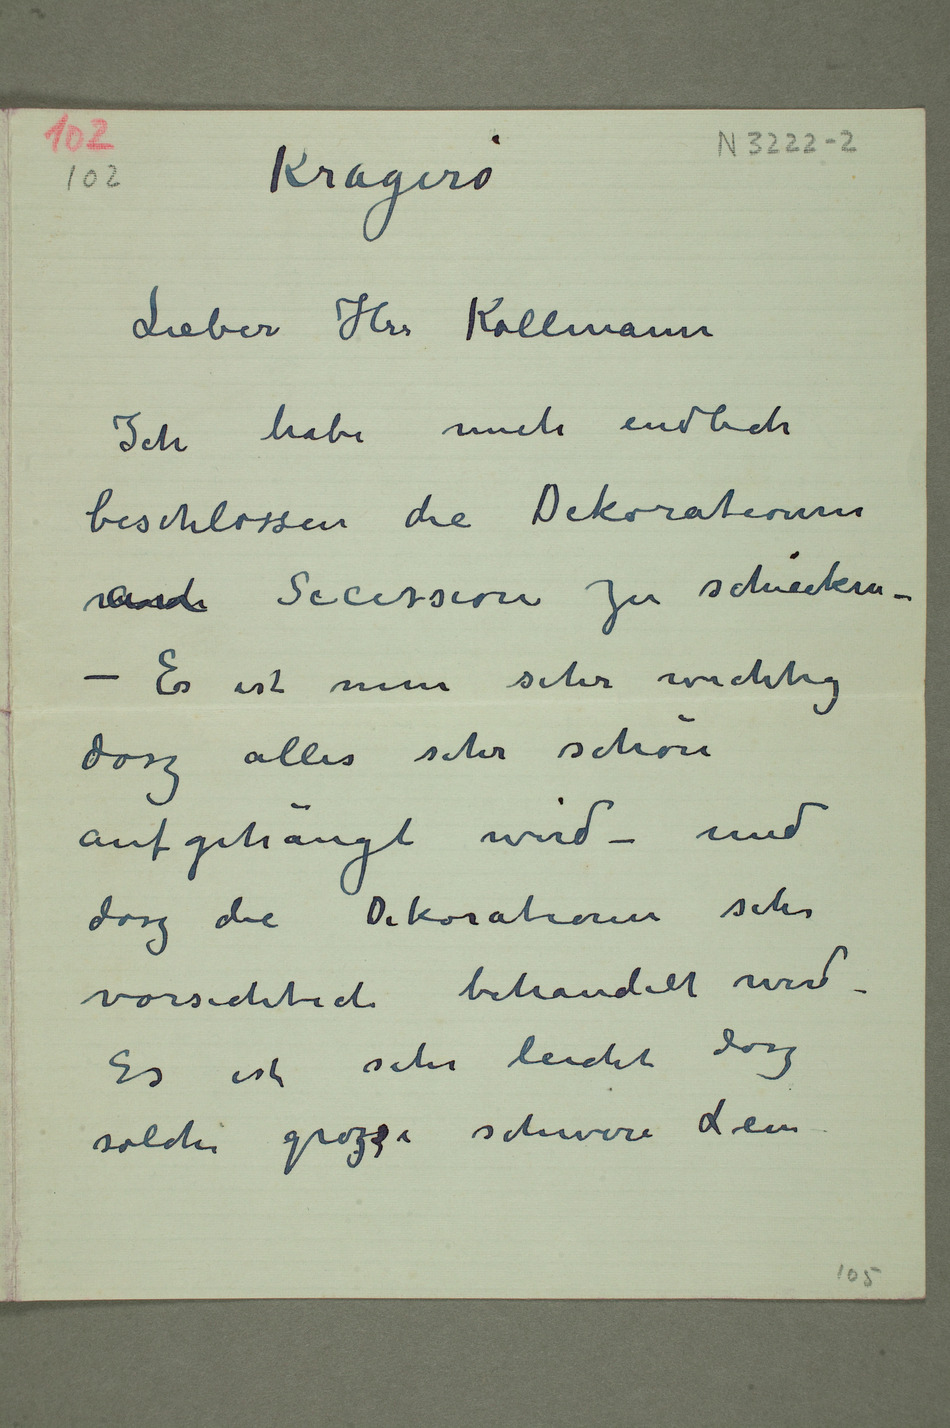 102
102
N 3222-2
Kragerö
Lieber Herr Kollmann
Ich habe mich endlich
beschlossen die Dekorationen
nach Secession zu schiecken –
– Es ist nun sehr wichtig
dosz alles sehr schön
aufgehängt wird – und
dosz die Dekorationen sehr
vorsichtich behandelt wird –
Es ist sehr leicht dosz
solche grozse schwere Lein
105